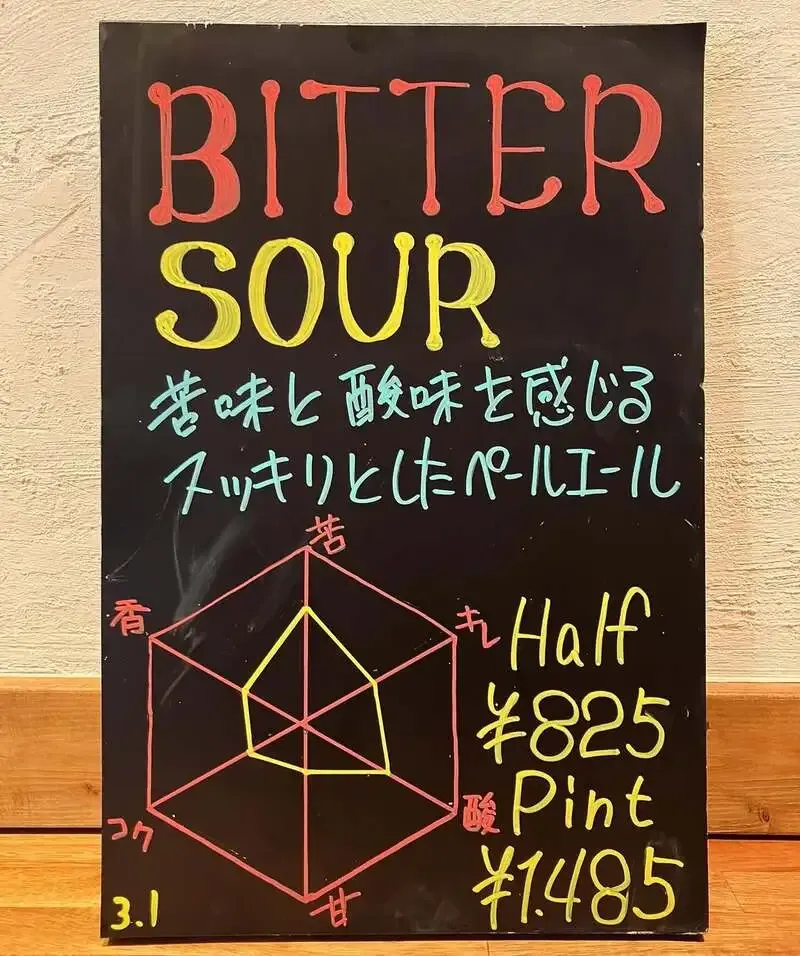 BITTER
SOUR
苦味と酸味を感じる
スッキリとしたペールエール
苦
香
キレ
コク
酸
甘
Half
¥825
Pint
¥1.485
3.1